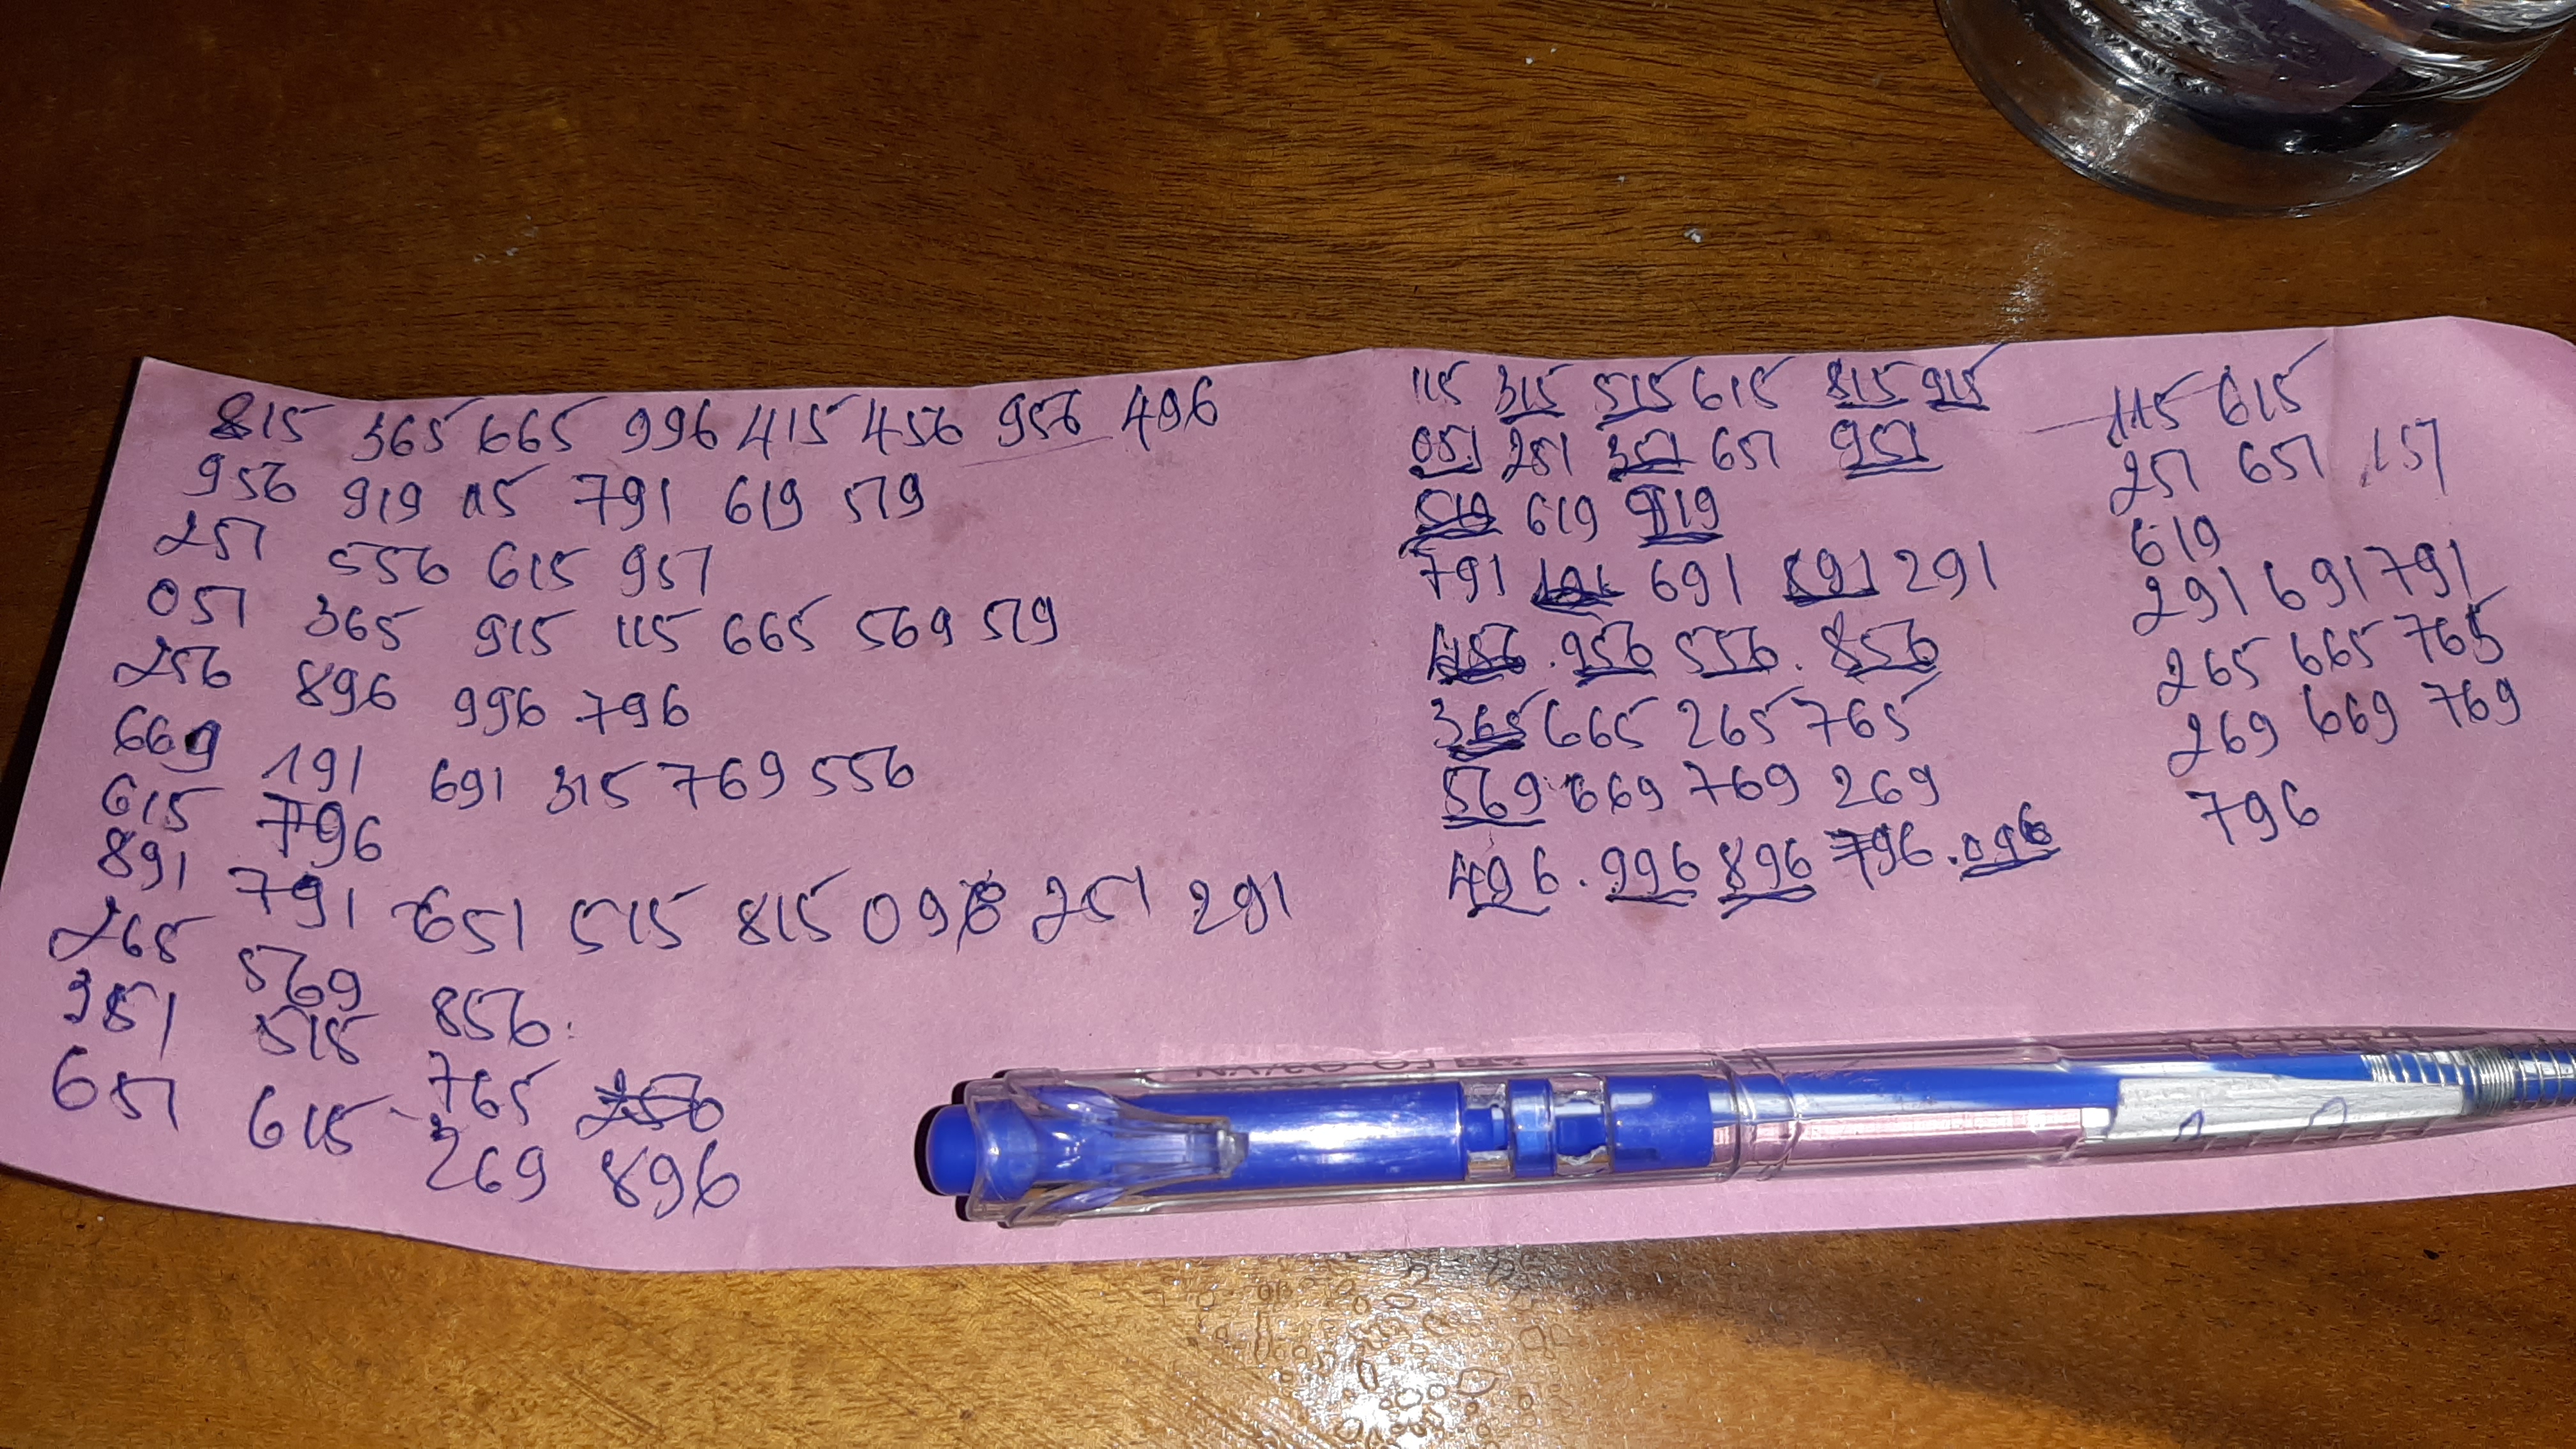 815 365 665 996 415 456 956 496
956 919 115 791 619 519
251 556 615 951
051 365 915 115 665 569 519
256 896 996 796
669 191 691 315 769 556
615 796
891 791 651 515 815 096 251 291
265 569 856
351 515 765
651 615 269 896
115 315 515 615 815 915
051 251 351 651 951
519 619 919
791 191 691 891 291
456 . 956 556 . 856
365 665 265 765
569 669 769 269
496 . 996 896 796 . 096
115 615
251 651 151
619
291 691 791
265 665 765
269 669 769
796